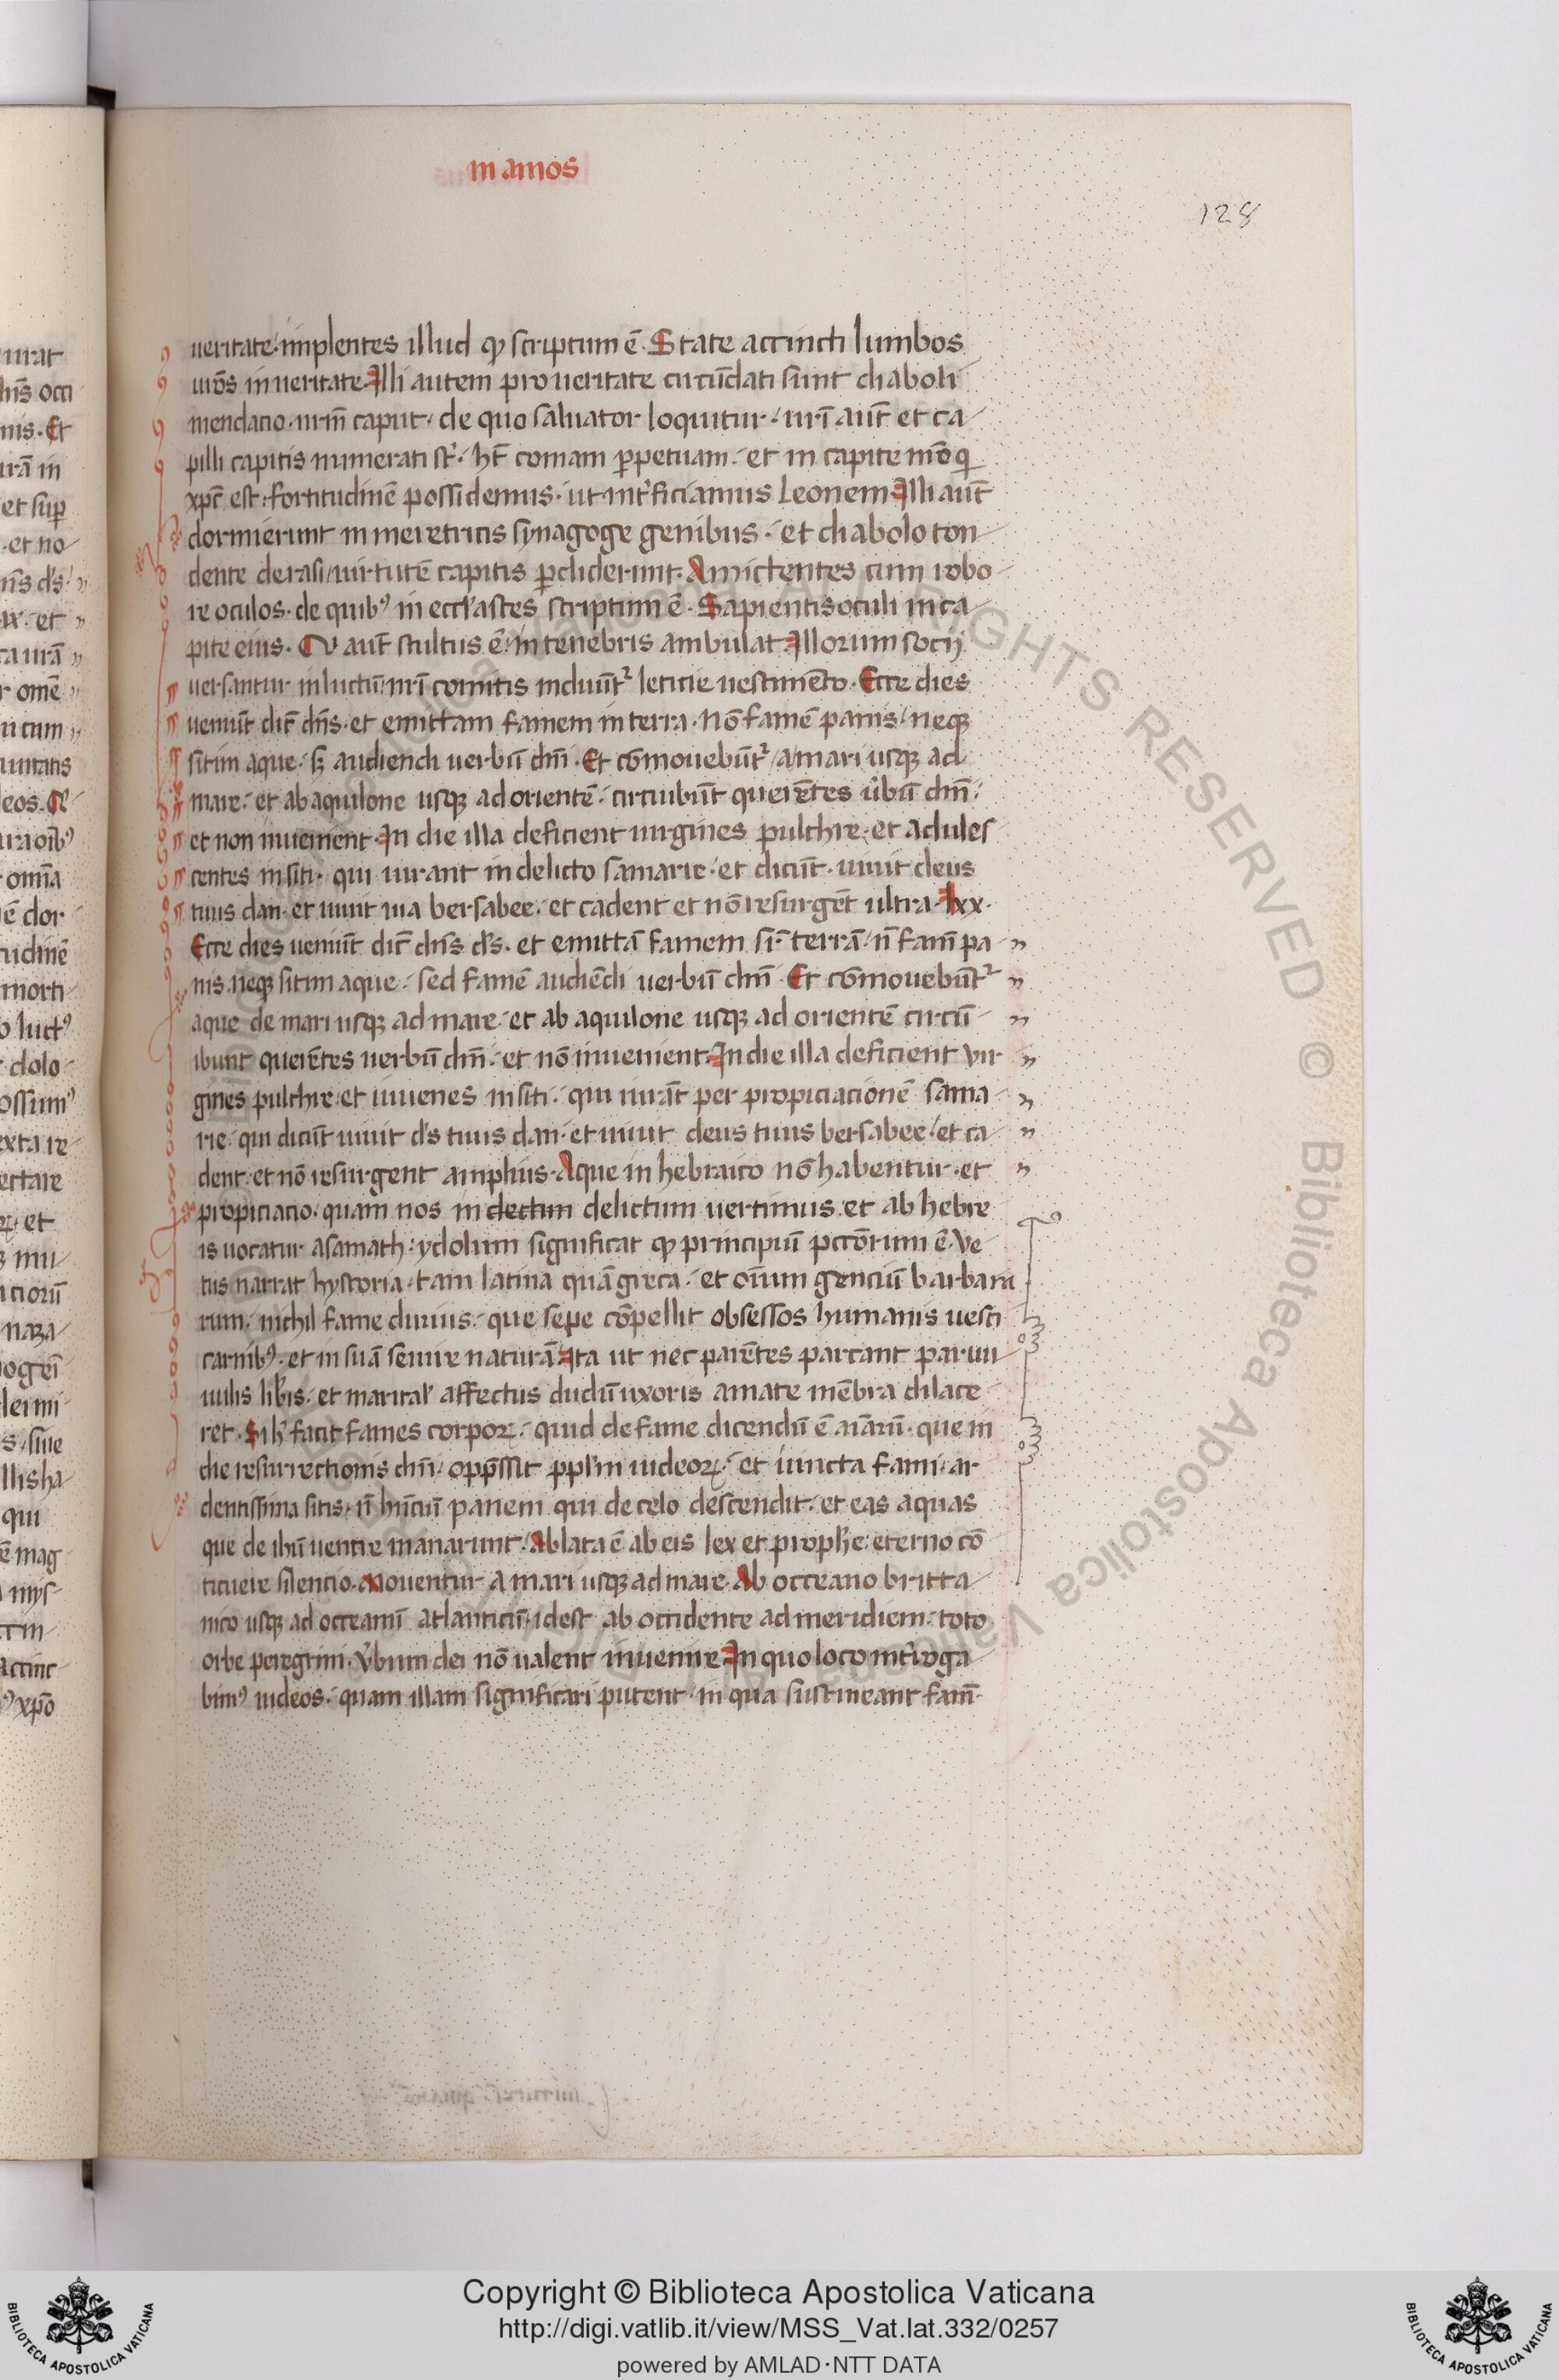 in amos
128
ueritate. implentes illud qđ scriptum ē. State accincti lumbos
urōs in ueritate. Illi autem pro ueritate circūdati sunt diaboli
mendacio. nrm̄ caput. de quo saluator loquitur. uri aut̄ et ca
pilli capitis numerati st̄. ht̄ comam ꝑpetuam. et in capite nrō qi
xpc̄ est. fortitudinē possidemus. ut int̄ficiamus leonem. Illi aut̄
dormierunt in meretricis synagoge genibus. et diabolo ton
dente derasi uirtutē capitis ꝑdiderunt. Amictentes cum robo
re oculos. de quibꝰ in eccl'astes scriptum ē. Sapientis oculi in ca
pite eius. Qi aut̄ stultus ē. in tenebris ambulat. Illorum socij
uersantur in luctū. nri comitis induūt᷑ leticie uestimēto. Ecce dies
ueniūt dic̄ dn̄s. et emittam famem in terra. nō famē panis. neqꝫ
sitim aque. sꝫ audiendi uerbū dn̄i. Et cōmouebūt᷑ a mari usqꝫ ad
mare. et ab aquilone usqꝫ ad orientē. circuibūt querētes ubū dn̄i.
et non inuenient. In die illa deficient uirgines pulchre. et adules
centes in siti. qui iurant in delicto samarie. et dicūt. uiuit deus
tuus dan. et uiuit uia bersabee. et cadent et nō resurgēt ultra. lxx.
Ecce dies ueniūt dic̄ dn̄s d's. et emittā famem sr̄ terrā. n̄ fam̄ pa
nis. neqꝫ sitim aque. sed famē audiēdi uerbū dn̄i. Et cōmouebūt᷑
aque de mari usqꝫ ad mare. et ab aquilone usqꝫ ad orientē circū
ibunt querētes uerbū dn̄i. et nō inuenient. In die illa deficient uir
gines pulchre. et iuuenes in siti. qui iurāt per propiciacionē sama
rie. qui dicūt uiuit d's tuus dan. et uiuit deus tuus bersabee. et ca
dent. et nō resurgent amplius. Aque in hebraico nō habentur. et
propiciacio. quam nos in dectum delictum uertimus. et ab hebre
is uocatur asamath. ydolum significat qđ principiū pctōrum ē. Ve
tus narrat hystoria. tam latina quā greca. et oīum genciū barbara
rum. nichil fame durius. que sepe cōpellit obsessos humanis uesci
carnibꝰ. et in suā seuire naturā. Ita ut nec parētes parcant paruu
uulis lib'is. et marital' affectus dudū uxoris amate mēbra dilace
ret. Si h' facit fames corporꝝ. quid de fame dicendū ē aīarū. que in
die resurrectionis dn̄i. opp̄ssit ppl'm iudeorꝝ. et iuncta fami. ar
dentissima sitis. n̄ hn̄ciū panem qui de celo descendit. et eas aquas
que de ihū uentre manarunt. Ablata ē ab eis lex et proph'e. eterno cō
ticuere silencio. Mouentur a mari usqꝫ ad mare. Ab occeano britta
nico usqꝫ ad occeanū atlanticū. idest ab occidente ad meridiem. toto
orbe peregrini. v'bum dei nō ualent inuenire. In quo loco int̄roga
bimꝰ iudeos. quam illam significari putent. in qua sustineant fam̄.
Copyright © Biblioteca Apostolica Vaticana
http://digi.vatlib.it/view/MSS_Vat.lat.332/0257
powered by AMLAD·NTT DATA